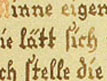 Minne eigen
ie lätt sich
ch stelle die